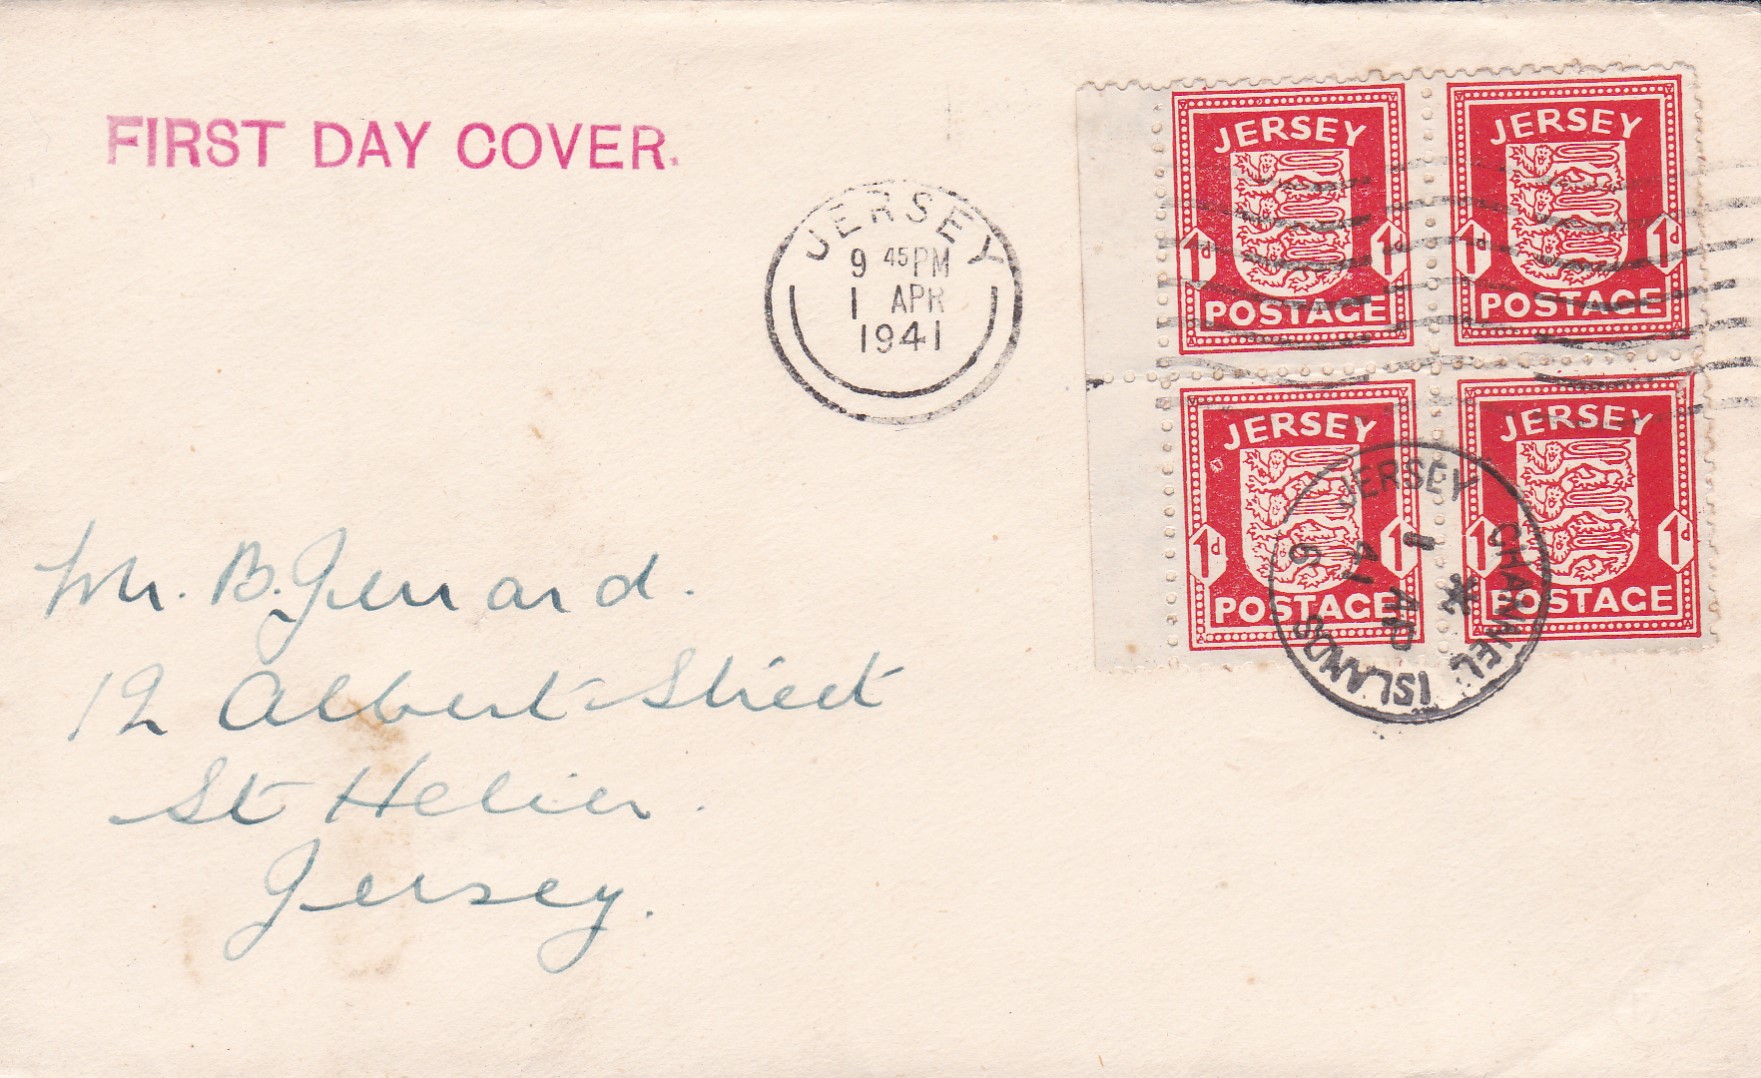 FIRST DAY COVER.
JERSEY
9 45PM
1 APR
1941
JERSEY
1d 1d
POSTAGE
JERSEY
1d 1d
POSTAGE
JERSEY
1d 1d
POSTAGE
JERSEY
1d 1d
POSTAGE
JERSEY
CHANNEL ISLANDS
1 AP
41
6
*
Mr. B. Jerrard.
12 Albert Street
St Helier.
Jersey.